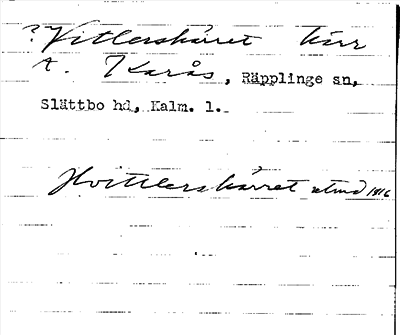 ? Vitlerskärret kärr
t. Karås, Räpplinge sn,
Slättbo hd, Kalm. l.
Hvittlerskärret utmd 1816